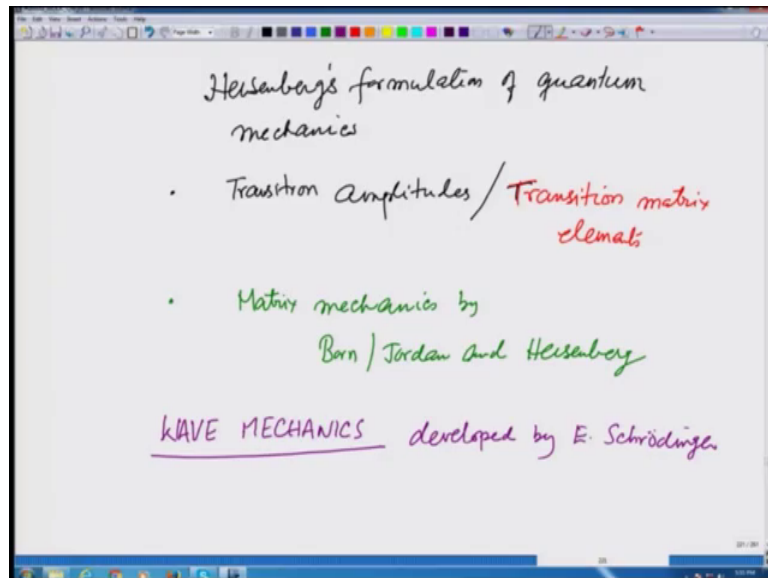 File Edit View Insert Actions Tools Help
Page Width
Heisenberg's formulation of quantum
mechanics
. Transition amplitudes / Transition matrix
elements
. Matrix mechanics by
Born / Jordan and Heisenberg
WAVE MECHANICS developed by E. Schrödinger